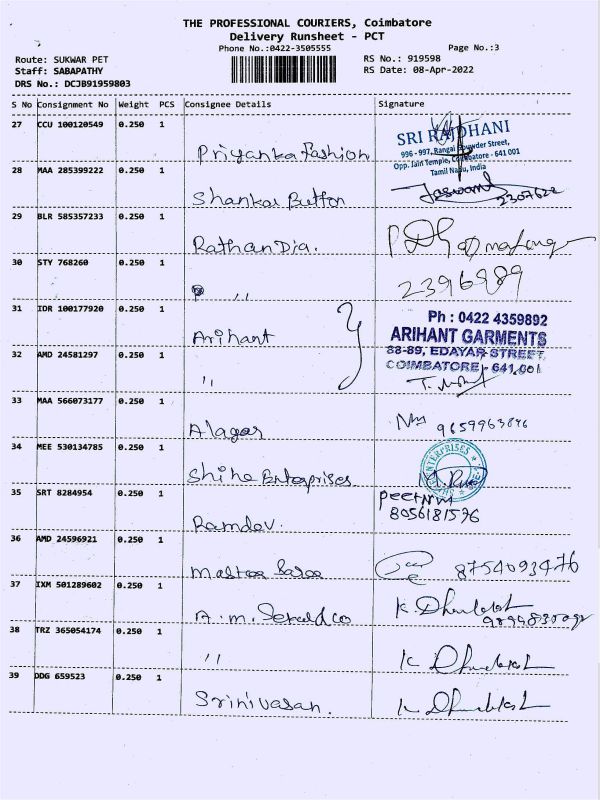 THE PROFESSIONAL COURIERS, Coimbatore
Delivery Runsheet - PCT
Phone No.:0422-3505555
Page No.:3
Route: SUKWAR PET
RS No.: 919598
Staff: SABAPATHY
RS Date: 08-Apr-2022
DRS No.: DCJB91959803
S No Consignment No Weight PCS Consignee Details Signature
27 CCU 100120549 0.250 1
Priyanka fashion
SRI RAJDHANI
996 - 997, Rangai Gowder Street,
Opp. Jain Temple, Coimbatore - 641 001
Tamil Nadu, India
28 MAA 285399222 0.250 1
Shankar Button
Jaswant
2307622
29 BLR 585357233 0.250 1
Rathan Dia.
30 STY 768260 0.250 1
"
2396989
31 IDR 100177920 0.250 1
Arihant
Ph : 0422 4359892
ARIHANT GARMENTS
88-89, EDAYAR STREET,
COIMBATORE - 641 001
32 AMD 24581297 0.250 1
"
33 MAA 566073177 0.250 1
Alagar
34 MEE 530134785 0.250 1
Shine Enterprises
ENTERPRISES
35 SRT 8284954 0.250 1
Ramdev.
8056181576
36 AMD 24596921 0.250 1
8754093476
37 IXM 501289602 0.250 1
38 TRZ 365054174 0.250 1
"
39 DDG 659523 0.250 1
Srinivasan.